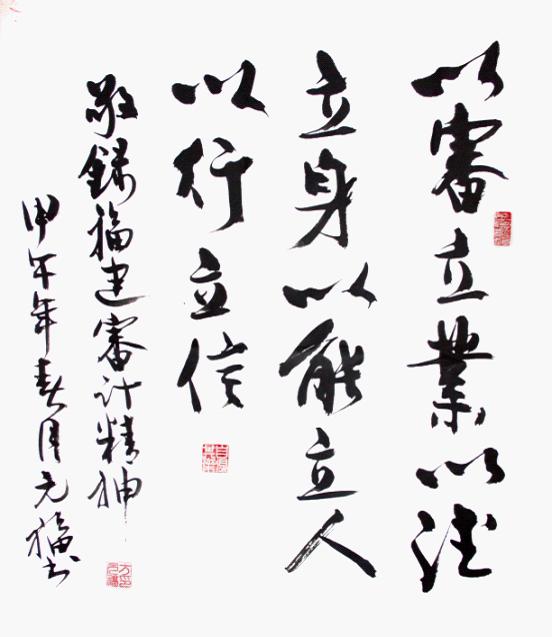 以審立業以法
立身以能立人
以行立信
敬録福建審计精神
甲午年春月元福书